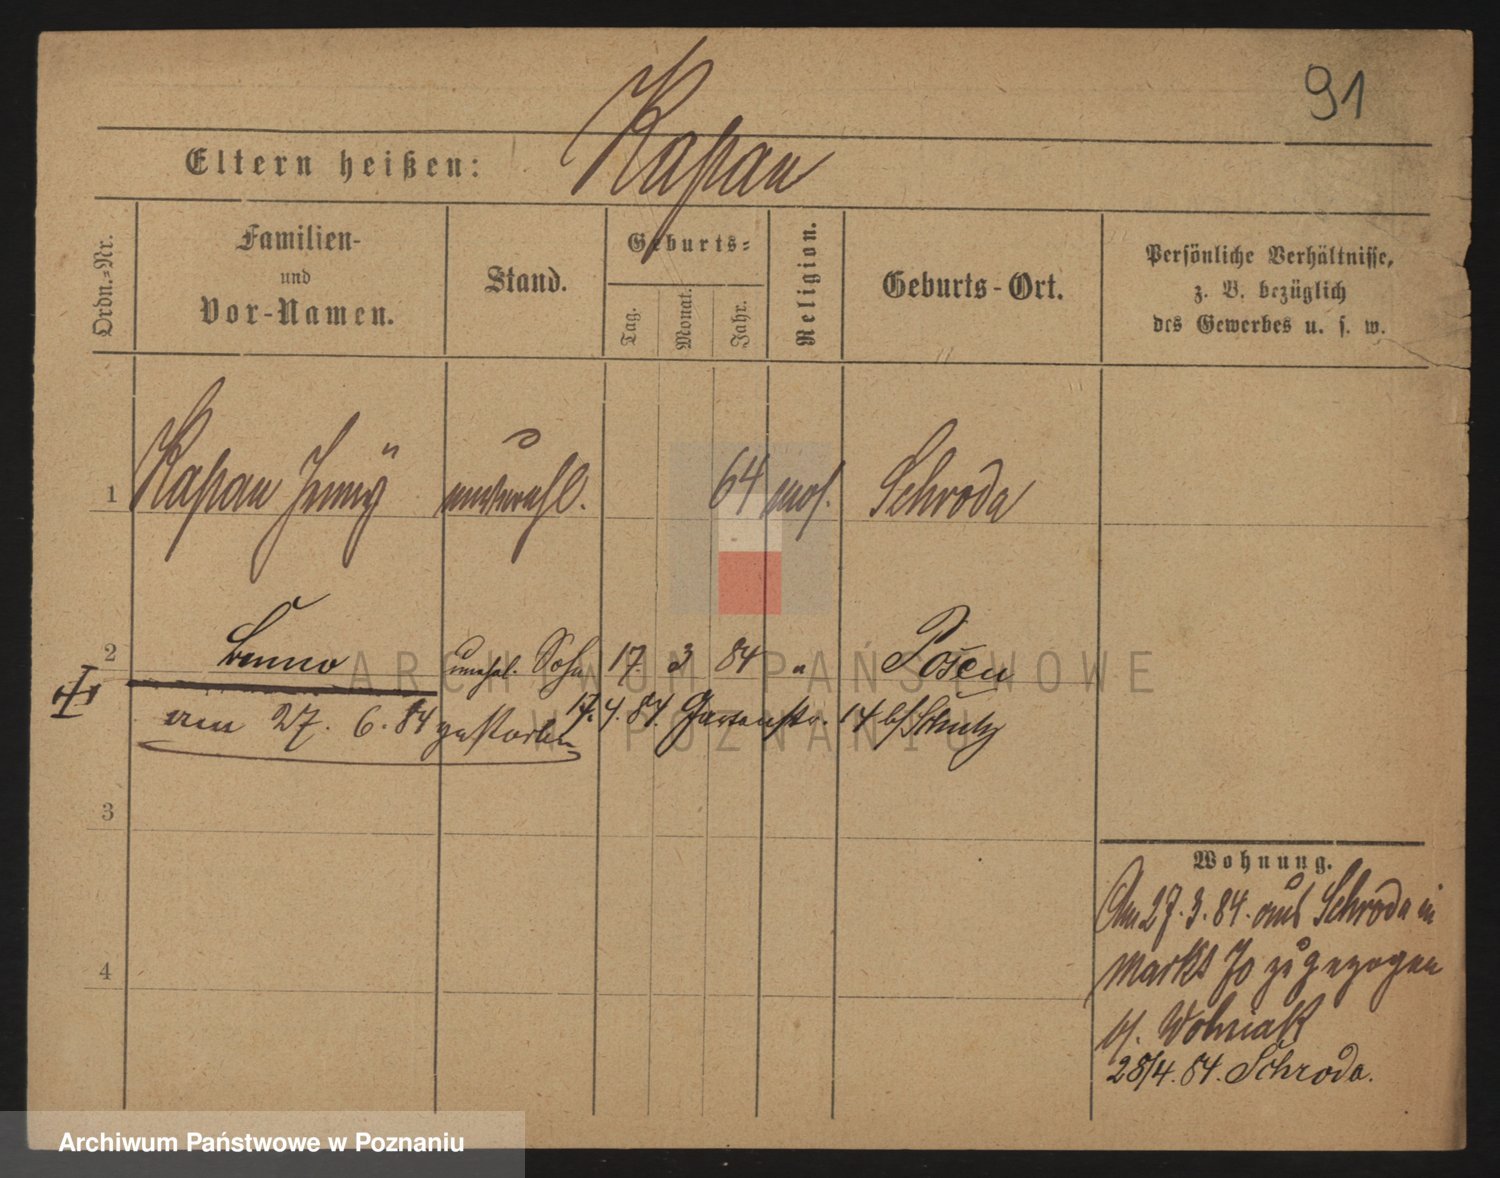 91
Eltern heißen: Kaſpan
Ordn.=Nr.
Familien-
und
Vor-Namen.
Stand.
Geburts=
Tag.
Monat.
Jahr.
Religion.
Geburts-Ort.
Persönliche Verhältnisse,
z. B. bezüglich
des Gewerbes u. s. w.
1 Kaſpan Jenny unverehl. 64 mos. Schroda
2 Benno unehel. Sohn 17. 3 84 " Posen
am 27. 6. 84 gestorben
17. 4. 84. Gartenstr. 14 bei Schulz
3
4
Wohnung.
Am 27. 3. 84. aus Schroda in
Markt 70 zugezogen
bei Wolniak
28/4. 84. Schroda.
ARCHIWUM PAŃSTWOWE
W POZNANIU
Archiwum Państwowe w Poznaniu